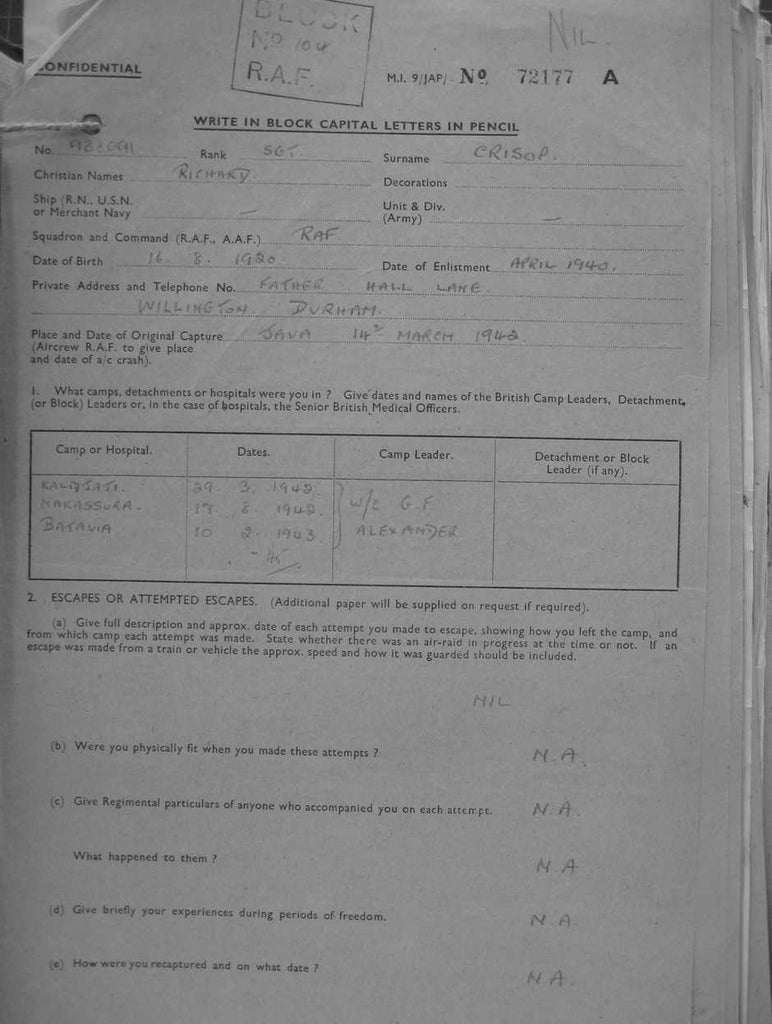 BLOCK
NO 104
R.A.F.
NIL.
CONFIDENTIAL
M.I. 9/JAP/ No. 72177 A
WRITE IN BLOCK CAPITAL LETTERS IN PENCIL
No. 988091 Rank SGT. Surname CRISOP.
Christian Names RICHARD. Decorations
Ship (R.N., U.S.N. or Merchant Navy — Unit & Div. (Army) —
Squadron and Command (R.A.F., A.A.F.) RAF.
Date of Birth 16. 8. 1920 Date of Enlistment APRIL 1940.
Private Address and Telephone No. FATHER HALL LANE
WILLINGTON. DURHAM.
Place and Date of Original Capture JAVA 14th MARCH 1942
(Aircrew R.A.F. to give place
and date of a/c crash).
1. What camps, detachments or hospitals were you in ? Give dates and names of the British Camp Leaders, Detachment,
(or Block) Leaders or, in the case of hospitals, the Senior British Medical Officers.
Camp or Hospital. Dates. Camp Leader. Detachment or Block
Leader (if any).
KALIJATI. 29. 3. 1942
MAKASSURA. 19 8. 1942. W/C G.F
BATAVIA 10 2. 1943. ALEXANDER
- 45
2. ESCAPES OR ATTEMPTED ESCAPES. (Additional paper will be supplied on request if required).
(a) Give full description and approx. date of each attempt you made to escape, showing how you left the camp, and
from which camp each attempt was made. State whether there was an air-raid in progress at the time or not. If an
escape was made from a train or vehicle the approx. speed and how it was guarded should be included.
NIL
(b) Were you physically fit when you made these attempts ? N.A.
(c) Give Regimental particulars of anyone who accompanied you on each attempt. N.A.
What happened to them ? N A
(d) Give briefly your experiences during periods of freedom. N A.
(e) How were you recaptured and on what date ? N A.